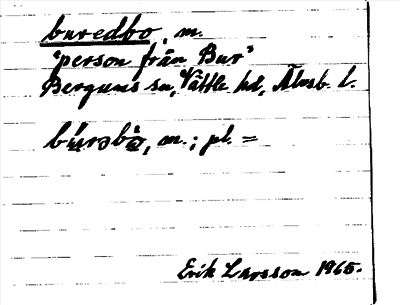 buredbo, m.
"person från Bur"
Bergums sn, Vättle hd, Älvsb. l.
bu̲rəbω̲, m.; pl. =
Erik Larsson 1965.